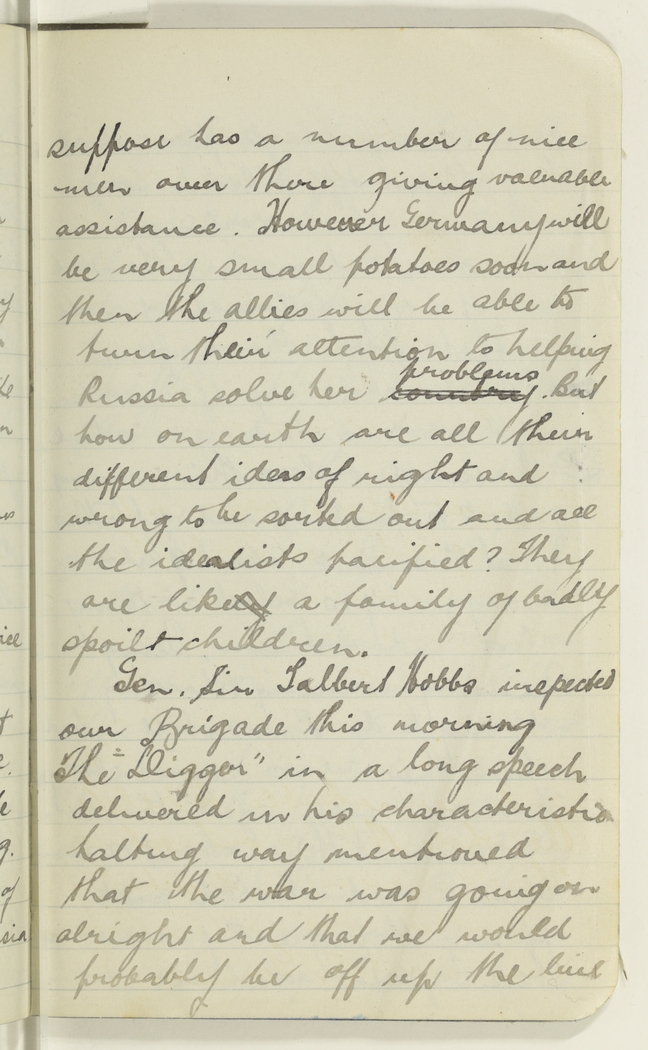 suppose has a number of nice
men over there giving valuable
assistance. However Germany will
be very small potatoes soon and
then the allies will be able to
turn their attention to helping
Russia solve her country problems. But
how on earth are all their
different ideas of right and
wrong to be sorted out and all
the idealists pacified? They
are likely a family of badly
spoilt children.
Gen. Sir Talbert Hobbs inspected
our Brigade this morning
The "Diggor" in a long speech
delivered in his characteristic
halting way mentioned
that the war was going on
alright and that we would
probably be off up the line